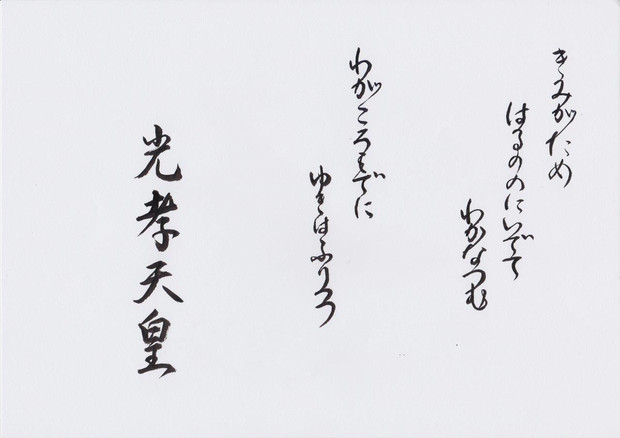 きみがため
はるののにいでて
わかなつむ
わがころもでに
ゆきはふりつつ
光孝天皇